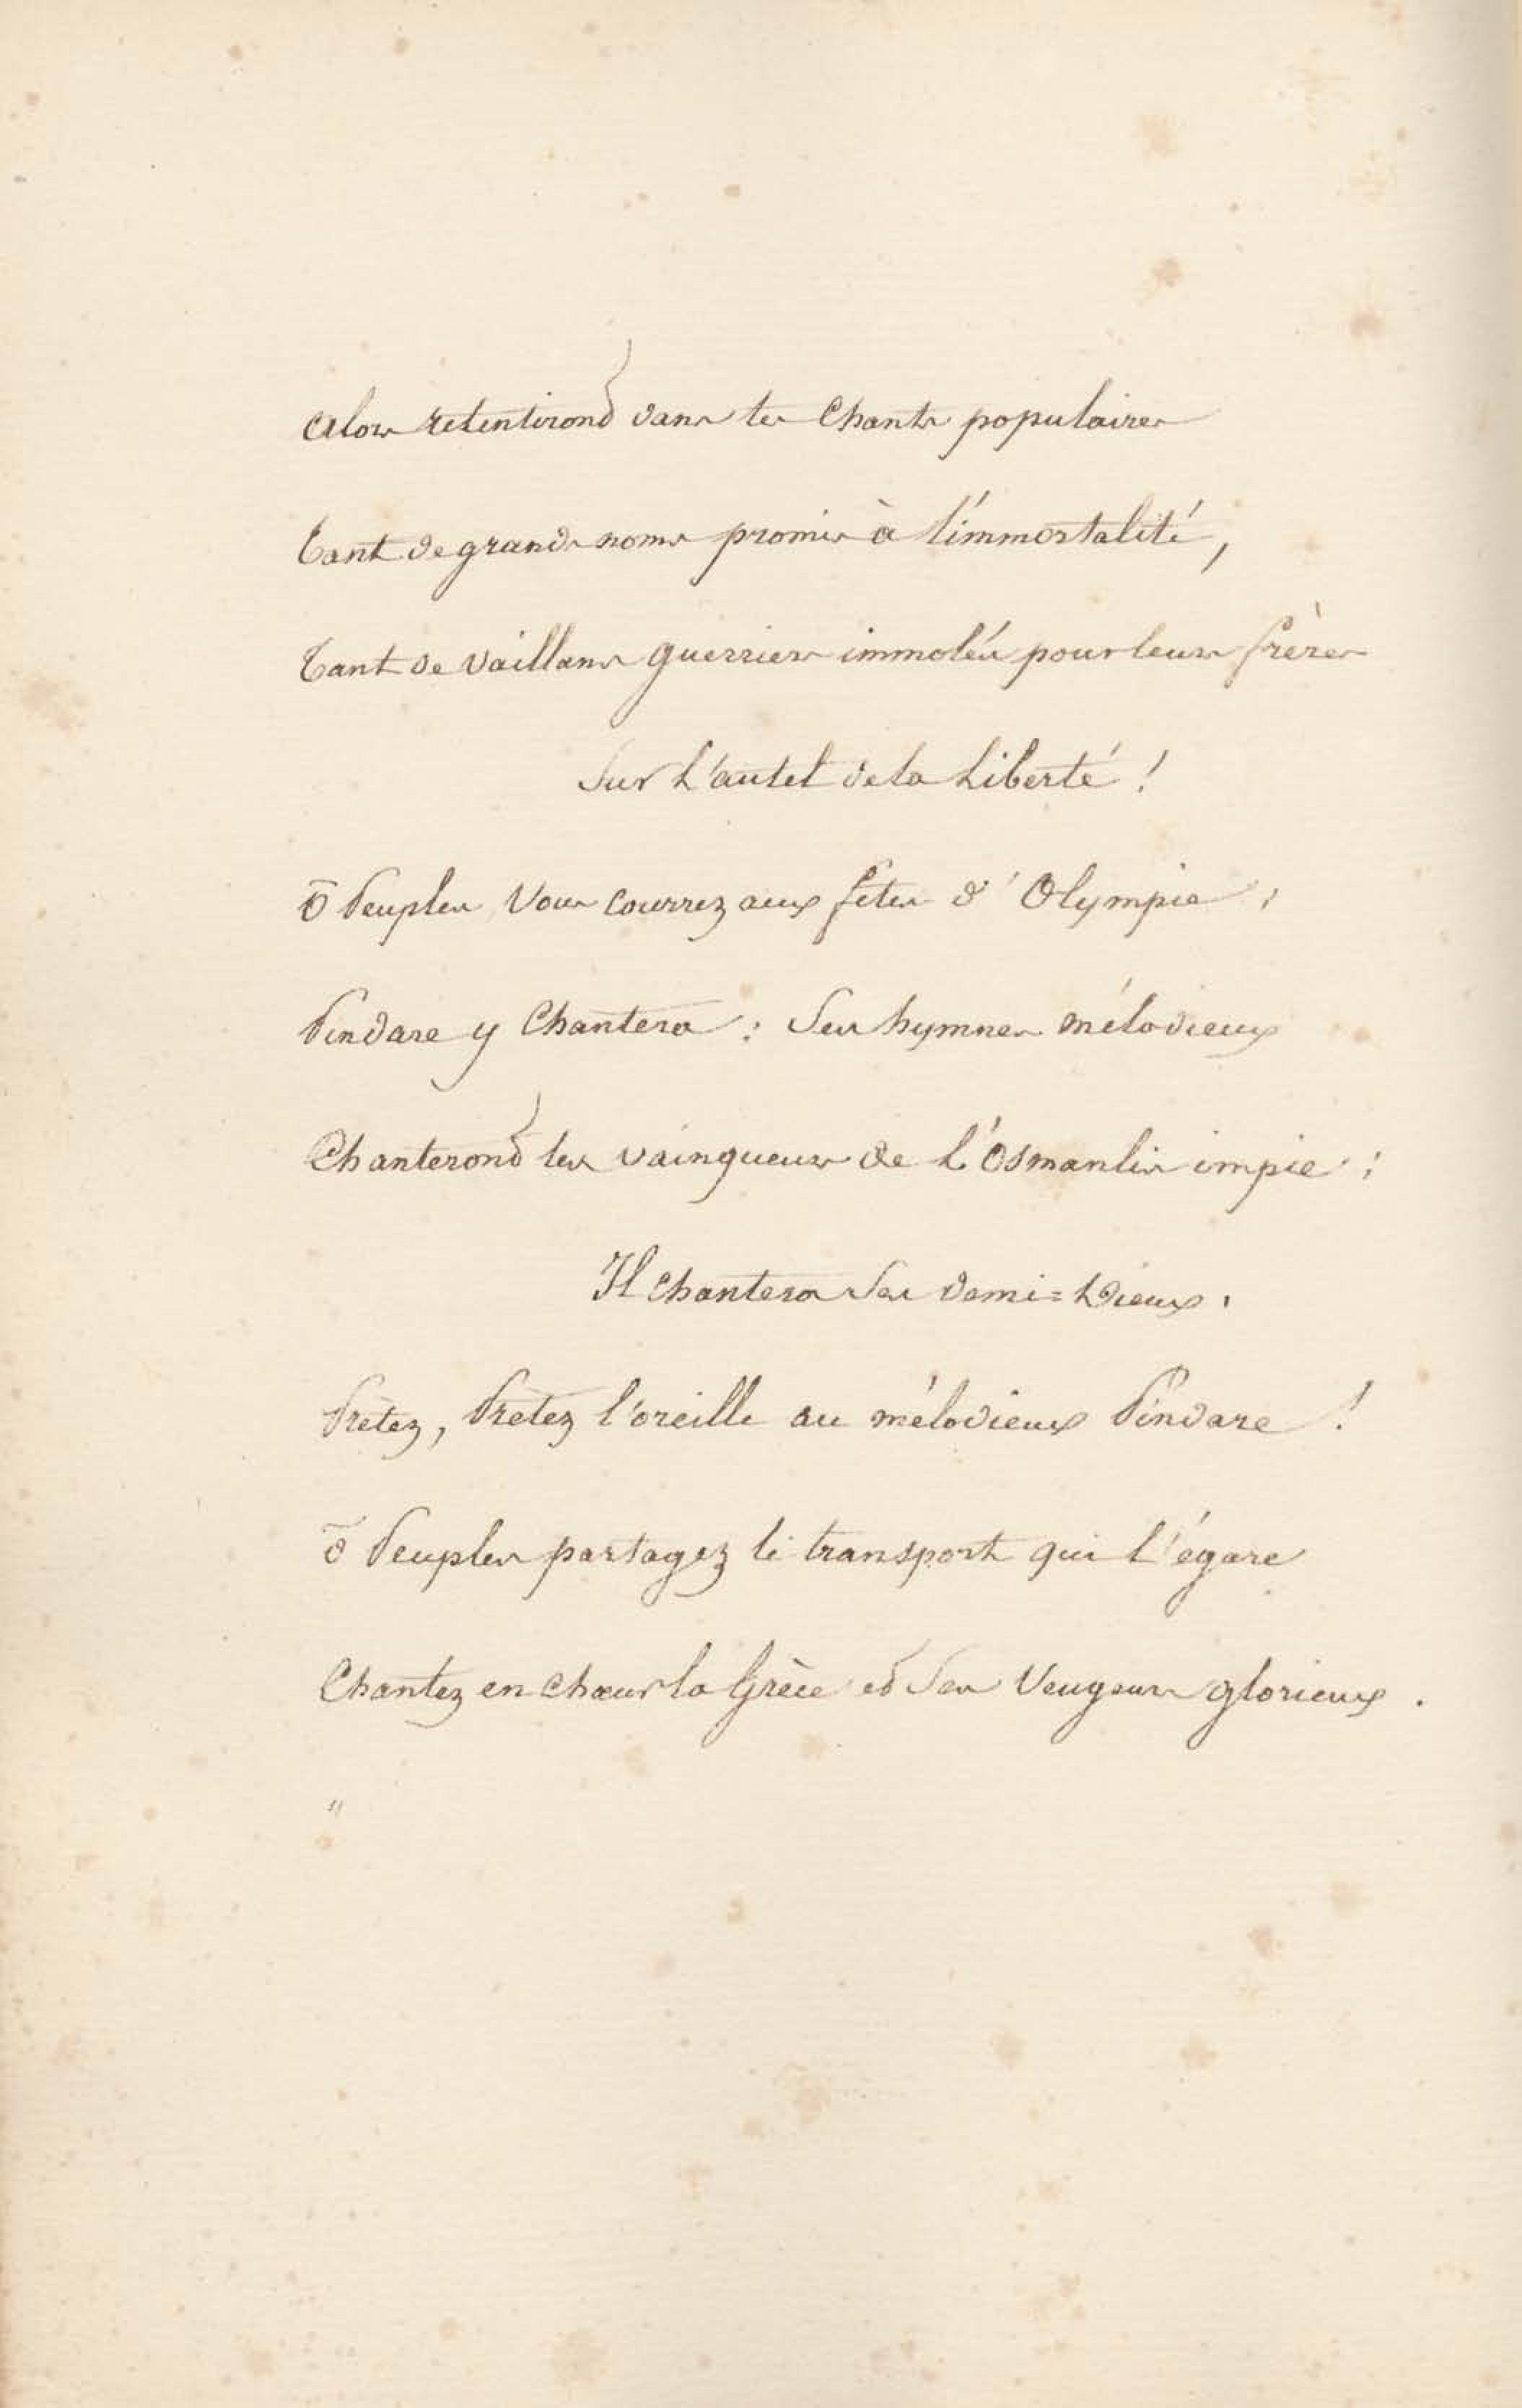 Alors retentiront dans tes Chants populaires
Tant de grands noms promis à l'immortalité,
Tant de vaillans guerriers immolés pour leurs frères
Sur L'autel de la Liberté !
ō Peuples Vous courrez aux fêtes d'Olympie ;
Pindare y Chantera : Ses hymnes mélodieux
Chanteront les vainqueurs de L'Osmanlis impie ;
Il chantera Ses demi=Dieux.
Prêtez, Prêtez l'oreille au mélodieux Pindare !
ō Peuples partagez le transport qui l'égare
Chantez en chœur la Grèce et Ses Vengeurs glorieux .
"